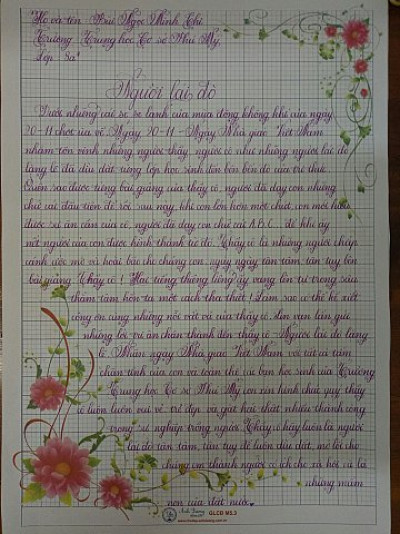 Họ và tên: Bùi Ngọc Minh Chi
Trường Trung học Cơ sở Phú Mỹ.
Lớp 8a⁴
Người lái đò
Dưới những cái se se lạnh của mùa đông không khí của ngày
20-11 chợt ùa về. Ngày 20-11 - Ngày Nhà giáo Việt Nam
nhằm tôn vinh những người thầy, người cô như những người lái đò
lặng lẽ dìu dắt từng lớp học sinh đến bến bờ của tri thức.
Quên sao được từng bài giảng của thầy cô, người đã dạy con những
chữ cái đầu tiên để rồi sau này, khi con lớn hơn một chút, con mới hiểu
được sự ân cần của cô người đã dạy con chữ cái A, B, C... để khi ấy
nét người của con được hình thành từ đó. Thầy cô là những người chắp
cánh ước mơ và hoài bão cho chúng con, ngày ngày tận tâm, tận tụy bên
bài giảng. Thầy cô! Hai tiếng thiêng liêng ấy vang lên từ trong sâu
thẳm tâm hồn ta một cách tha thiết! Làm sao có thể kể xiết
công ơn cùng những nỗi vất vả của thầy cô, con van lần gửi
những lời tri ân chân thành đến thầy cô - Người lái đò lặng
lẽ. Nhân ngày Nhà giáo Việt Nam với tất cả tấm
chân tình của con và toàn thể các bạn học sinh của Trường
Trung học Cơ sở Phú Mỹ con xin kính chúc quý thầy
cô luôn luôn vui vẻ, trẻ đẹp và gặt hái thật nhiều thành công
trong sự nghiệp trồng người. Thầy cô hãy luôn là người
lái đò tận tâm, tận tụy để luôn dìu dắt, mở lối cho
chúng con thành người có ích cho xã hội và là
những mầm
non của đất nước.
Ánh Dương
QLCĐ M5.3